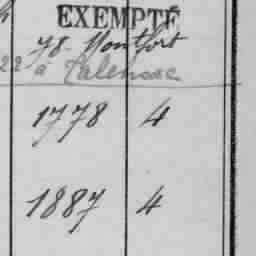 EXEMPTÉ
78. Montfort
22 à Talensac
1778 4
1887 4